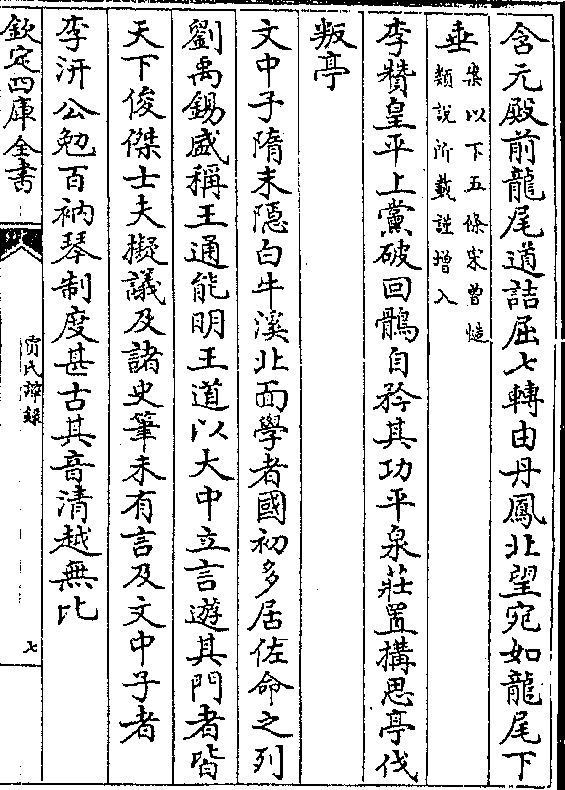 含元殿前龍尾道詰屈七轉由丹鳳北望宛如龍尾下
垂案以下五條宋曾慥
類說所載謹增入
李贊皇平上黨破回鶻自矜其功平泉莊置搆思亭伐
叛亭
文中子隋末隱白牛溪北面學者國初多居佐命之列
劉禹錫盛稱王通能明王道以大中立言遊其門者皆
天下俊傑士夫擬議及諸史筆未有言及文中子者
李汧公勉百衲琴制度甚古其音清越無比
欽定四庫全書
賈氏譚錄
七